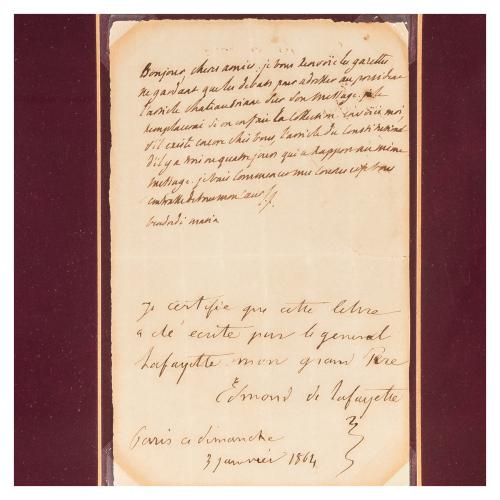 Bonjour, chers amis. je vous renvoie les gazettes
ne gardant que les debats pour adresser au president
l'article chateaubriand sur son message. je le
remplacerai si on en fait la collection. envoiez moi,
s'il existe encore chez vous, l'article du Constitutionnel
d'il y a trois ou quatre jours qui a rapport au même
message. je vais commencer mes courses et vous
embrasse de tout mon cœur
vendredi matin
Je certifie que cette lettre
a été ecrite par le general
Lafayette mon grand Pere
Edmond de Lafayette
Paris ce dimanche
3 janvier 1864